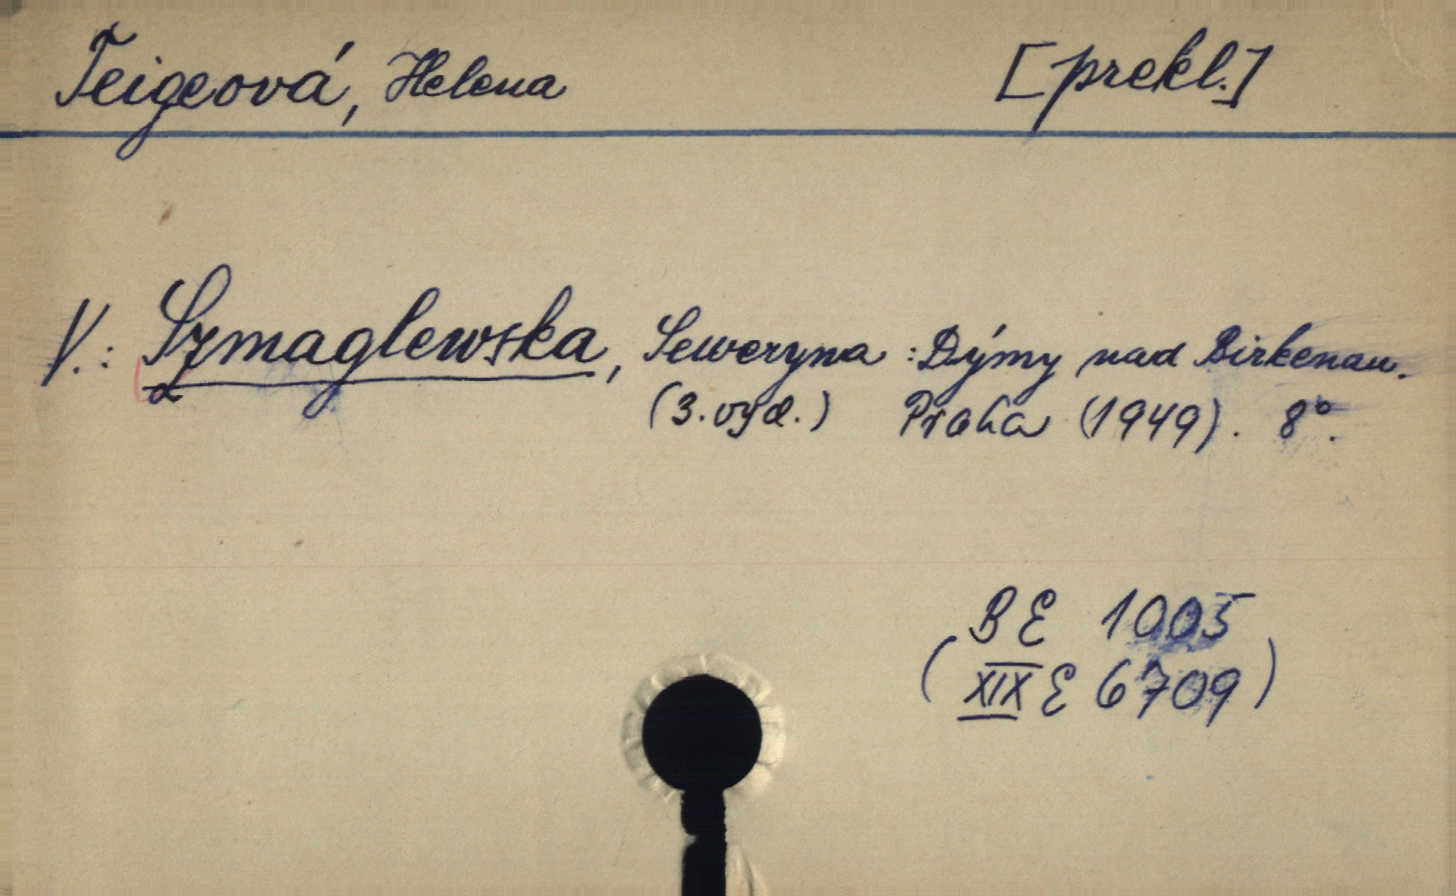 Teigeová, Helena [prekl.]
V.: Szmaglewska, Seweryna : Dýmy nad Birkenau.
(3. vyd.) Praha (1949). 8°.
BE 1005
(XIX E 6709)